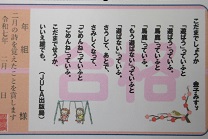 こだまでしょうか
金子みすゞ
「遊ぼう」っていうと、
「遊ぼう」っていう。
「馬鹿」っていうと、
「馬鹿」っていう。
「もう遊ばない」っていうと、
「遊ばない」っていう。
そうして、あとで、
さみしくなって、
「ごめんね」っていうと、
「ごめんね」っていう。
こだまでしょうか、
いいえ、誰でも。
(JULA出版局)
合格
年 組 様
二月の詩を覚えたことを賞します
令和七年 二月 日